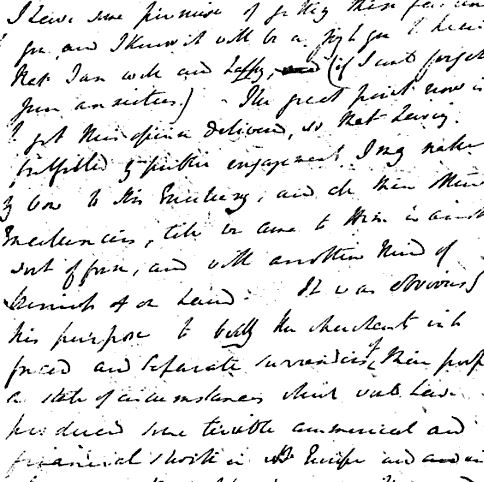 I have some promise of getting these few lines
you, and I know it will be a joy to you to hear
that I am well and happy, (if I could forget
your anxieties.) - The great point now is
to get this opium delivered, so that having
fulfilled my public engagement I may make
my bow to His Excellency, and all these other
Excellencies, till we come to them in another
sort of form, and with another kind of
at hand. It was obviously
his purpose to bully the merchants into
forced and separate surrenders of their property
a state of circumstances which would have
produced some terrible commercial and
financial shock in Europe and